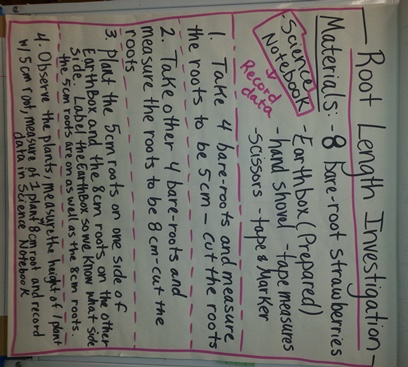 Root Length Investigation
Materials: - 8 bare-root strawberries
- Science Notebook
Record data
- Earthbox (Prepared)
- hand shovel - tape measures
- scissors - tape & Marker
1. Take 4 bare-roots and measure
the roots to be 5cm - cut the roots
2. Take other 4 bare-roots and
measure the roots to be 8cm - cut the
roots
3. Plant the 5cm roots on one side of
Earthbox and the 8cm roots on the other
side. Label the Earthbox so we know what side
the 5cm roots are on as well as the 8cm roots.
4. Observe the plants, measure the height of 1 plant
w/ 5cm root, measure of 1 plant 8cm root and record
data in Science Notebook